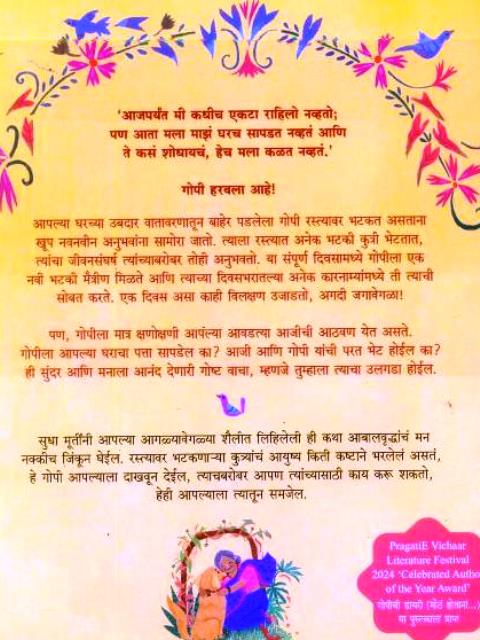 'आजपर्यंत मी कधीच एकटा राहिलो नव्हतो;
पण आता मला माझं घरच सापडत नव्हतं आणि
ते कसं शोधायचं, हेच मला कळत नव्हतं.'
गोपी हरवला आहे!
आपल्या घरच्या उबदार वातावरणातून बाहेर पडलेला गोपी रस्त्यावर भटकत असताना
खूप नवनवीन अनुभवांना सामोरा जातो. त्याला रस्त्यात अनेक भटकी कुत्री भेटतात,
त्यांचा जीवनसंघर्ष त्यांच्याबरोबर तोही अनुभवतो. या संपूर्ण दिवसामध्ये गोपीला एक
नवी भटकी मैत्रीण मिळते आणि त्याच्या दिवसभरातल्या अनेक कारनाम्यांमध्ये ती त्याची
सोबत करते. एक दिवस असा काही विलक्षण उजाडतो, अगदी जगावेगळा!
पण, गोपीला मात्र क्षणोक्षणी आपल्या आवडत्या आजीची आठवण येत असते.
गोपीला आपल्या घराचा पत्ता सापडेल का? आजी आणि गोपी यांची परत भेट होईल का?
ही सुंदर आणि मनाला आनंद देणारी गोष्ट वाचा, म्हणजे तुम्हाला त्याचा उलगडा होईल.
सुधा मूर्तींनी आपल्या आगळ्यावेगळ्या शैलीत लिहिलेली ही कथा आबालवृद्धांचं मन
नक्कीच जिंकून घेईल. रस्त्यावर भटकणाऱ्या कुत्र्यांचं आयुष्य किती कष्टाने भरलेलं असतं,
हे गोपी आपल्याला दाखवून देईल, त्याचबरोबर आपण त्यांच्यासाठी काय करू शकतो,
हेही आपल्याला त्यातून समजेल.
PragatiE Vichaar
Literature Festival
2024 'Celebrated Autho
of the Year Award'
गोपीची डायरी (मोठं होताना...)
या पुस्तकाला प्राप्त